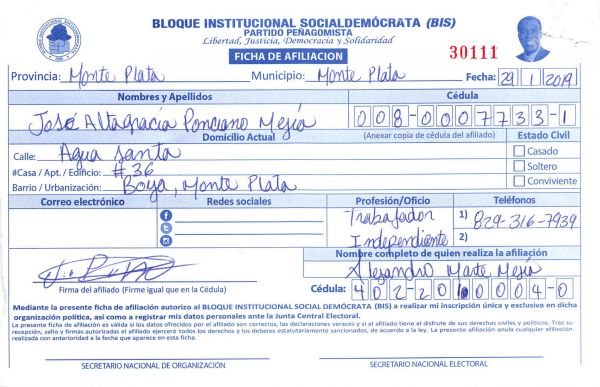 BLOQUE INSTITUCIONAL SOCIALDEMÓCRATA (BIS)
PARTIDO PEÑAGOMISTA
Libertad, Justicia, Democracia y Solidaridad
FICHA DE AFILIACION
30111
Provincia: Monte Plata Municipio: Monte Plata Fecha: 29 1 2019
Nombres y Apellidos Cédula
José Altagracia Ponciano Mejía 008-0007733-1
Domicilio Actual (Anexar copia de cédula del afiliado) Estado Civil
Calle: Agua Santa Casado
#Casa / Apt. / Edificio: #36 Soltero
Barrio / Urbanización: Boya, Monte Plata Conviviente
Correo electrónico Redes sociales Profesión/Oficio Teléfonos
Trabajador 1) 829-316-7939
Independiente 2)
Nombre completo de quien realiza la afiliación
Alejandro Marte Mejía
Firma del afiliado (Firme igual que en la Cédula) Cédula: 402-2010004-0
Mediante la presente ficha de afiliación autorizo al BLOQUE INSTITUCIONAL SOCIAL DEMÓCRATA (BIS) a realizar mi inscripción única y exclusiva en dicha
organización política, así como a registrar mis datos personales ante la Junta Central Electoral.
La presente ficha de afiliación es válida si los datos ofrecidos por el afiliado son correctos, las declaraciones veraces y si el afiliado tiene el disfrute de sus derechos civiles y políticos. Tras su
recepción, sello y firmas autorizadas el afiliado ejercerá todos los derechos y los deberes estatutariamente sancionados, de acuerdo a la ley. La presente afiliación anula cualquier afiliación
realizada con anterioridad a la fecha que aparece en esta ficha.
SECRETARIO NACIONAL DE ORGANIZACIÓN SECRETARIO NACIONAL ELECTORAL